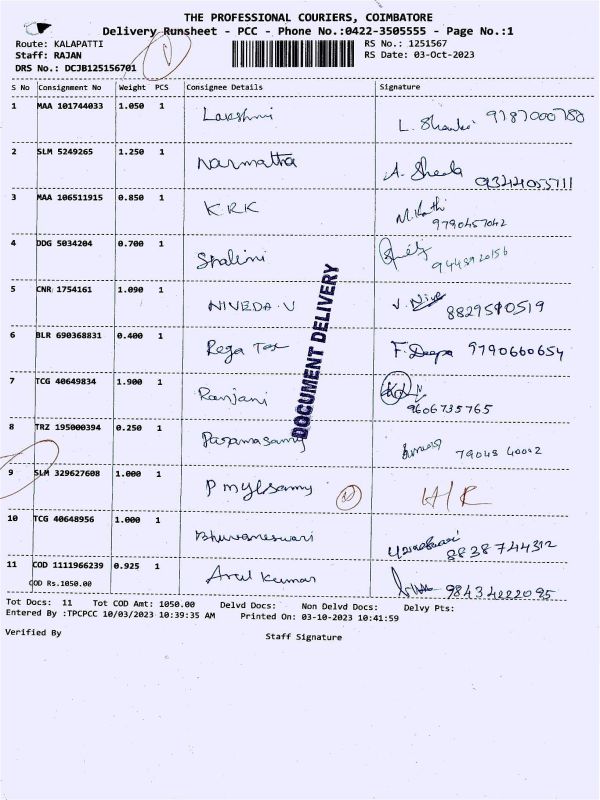 THE PROFESSIONAL COURIERS, COIMBATORE
Delivery Runsheet - PCC - Phone No.:0422-3505555 - Page No.:1
Route: KALAPATTI RS No.: 1251567
Staff: RAJAN RS Date: 03-Oct-2023
DRS No.: DCJB125156701
S No Consignment No Weight PCS Consignee Details Signature
1 MAA 101744033 1.050 1 Lakshmi L. 9787000780
2 SLM 5249265 1.250 1 Narmatha A. Sheela 9344055711
3 MAA 106511915 0.850 1 KRK 9790457042
4 DDG 5034204 0.700 1 Shalini 9445920156
5 CNR 1754161 1.090 1 NIVEDA.V
6 BLR 690368831 0.400 1 Rega Tex F. Deepa 9790660654
7 TCG 40649834 1.900 1 Ranjani 9606735765
8 TRZ 195000394 0.250 1
9 SLM 329627608 1.000 1 P
10 TCG 40648956 1.000 1 Bhuvaneswari 8838744312
11 COD 1111966239 0.925 1 Arul Kumar 98434222095
COD Rs.1050.00
DOCUMENT DELIVERY
Tot Docs: 11 Tot COD Amt: 1050.00 Delvd Docs: Non Delvd Docs: Delvy Pts:
Entered By :TPCPCC 10/03/2023 10:39:35 AM Printed On: 03-10-2023 10:41:59
Verified By Staff Signature